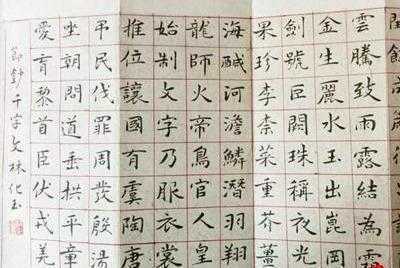 閏餘
雲騰致雨露結為
金生麗水玉出崑岡
劍號巨闕珠稱夜光
果珍李柰菜重芥薑
海鹹河澹鱗潛羽翔
龍師火帝鳥官人皇
始制文字乃服衣裳
推位讓國有虞陶唐
吊民伐罪周發殷湯
坐朝問道垂拱平章
愛育黎首臣伏戎羌
節鈔千字文林化玉